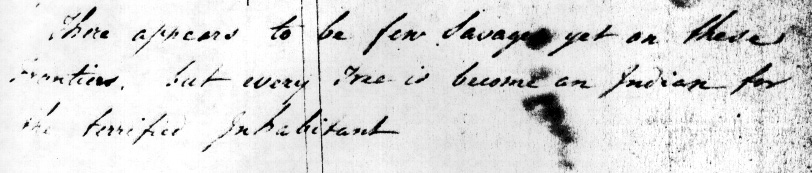 There appears to be few Savages yet on these
frontiers. but every Tree is become an Indian for
the terrified Inhabitant